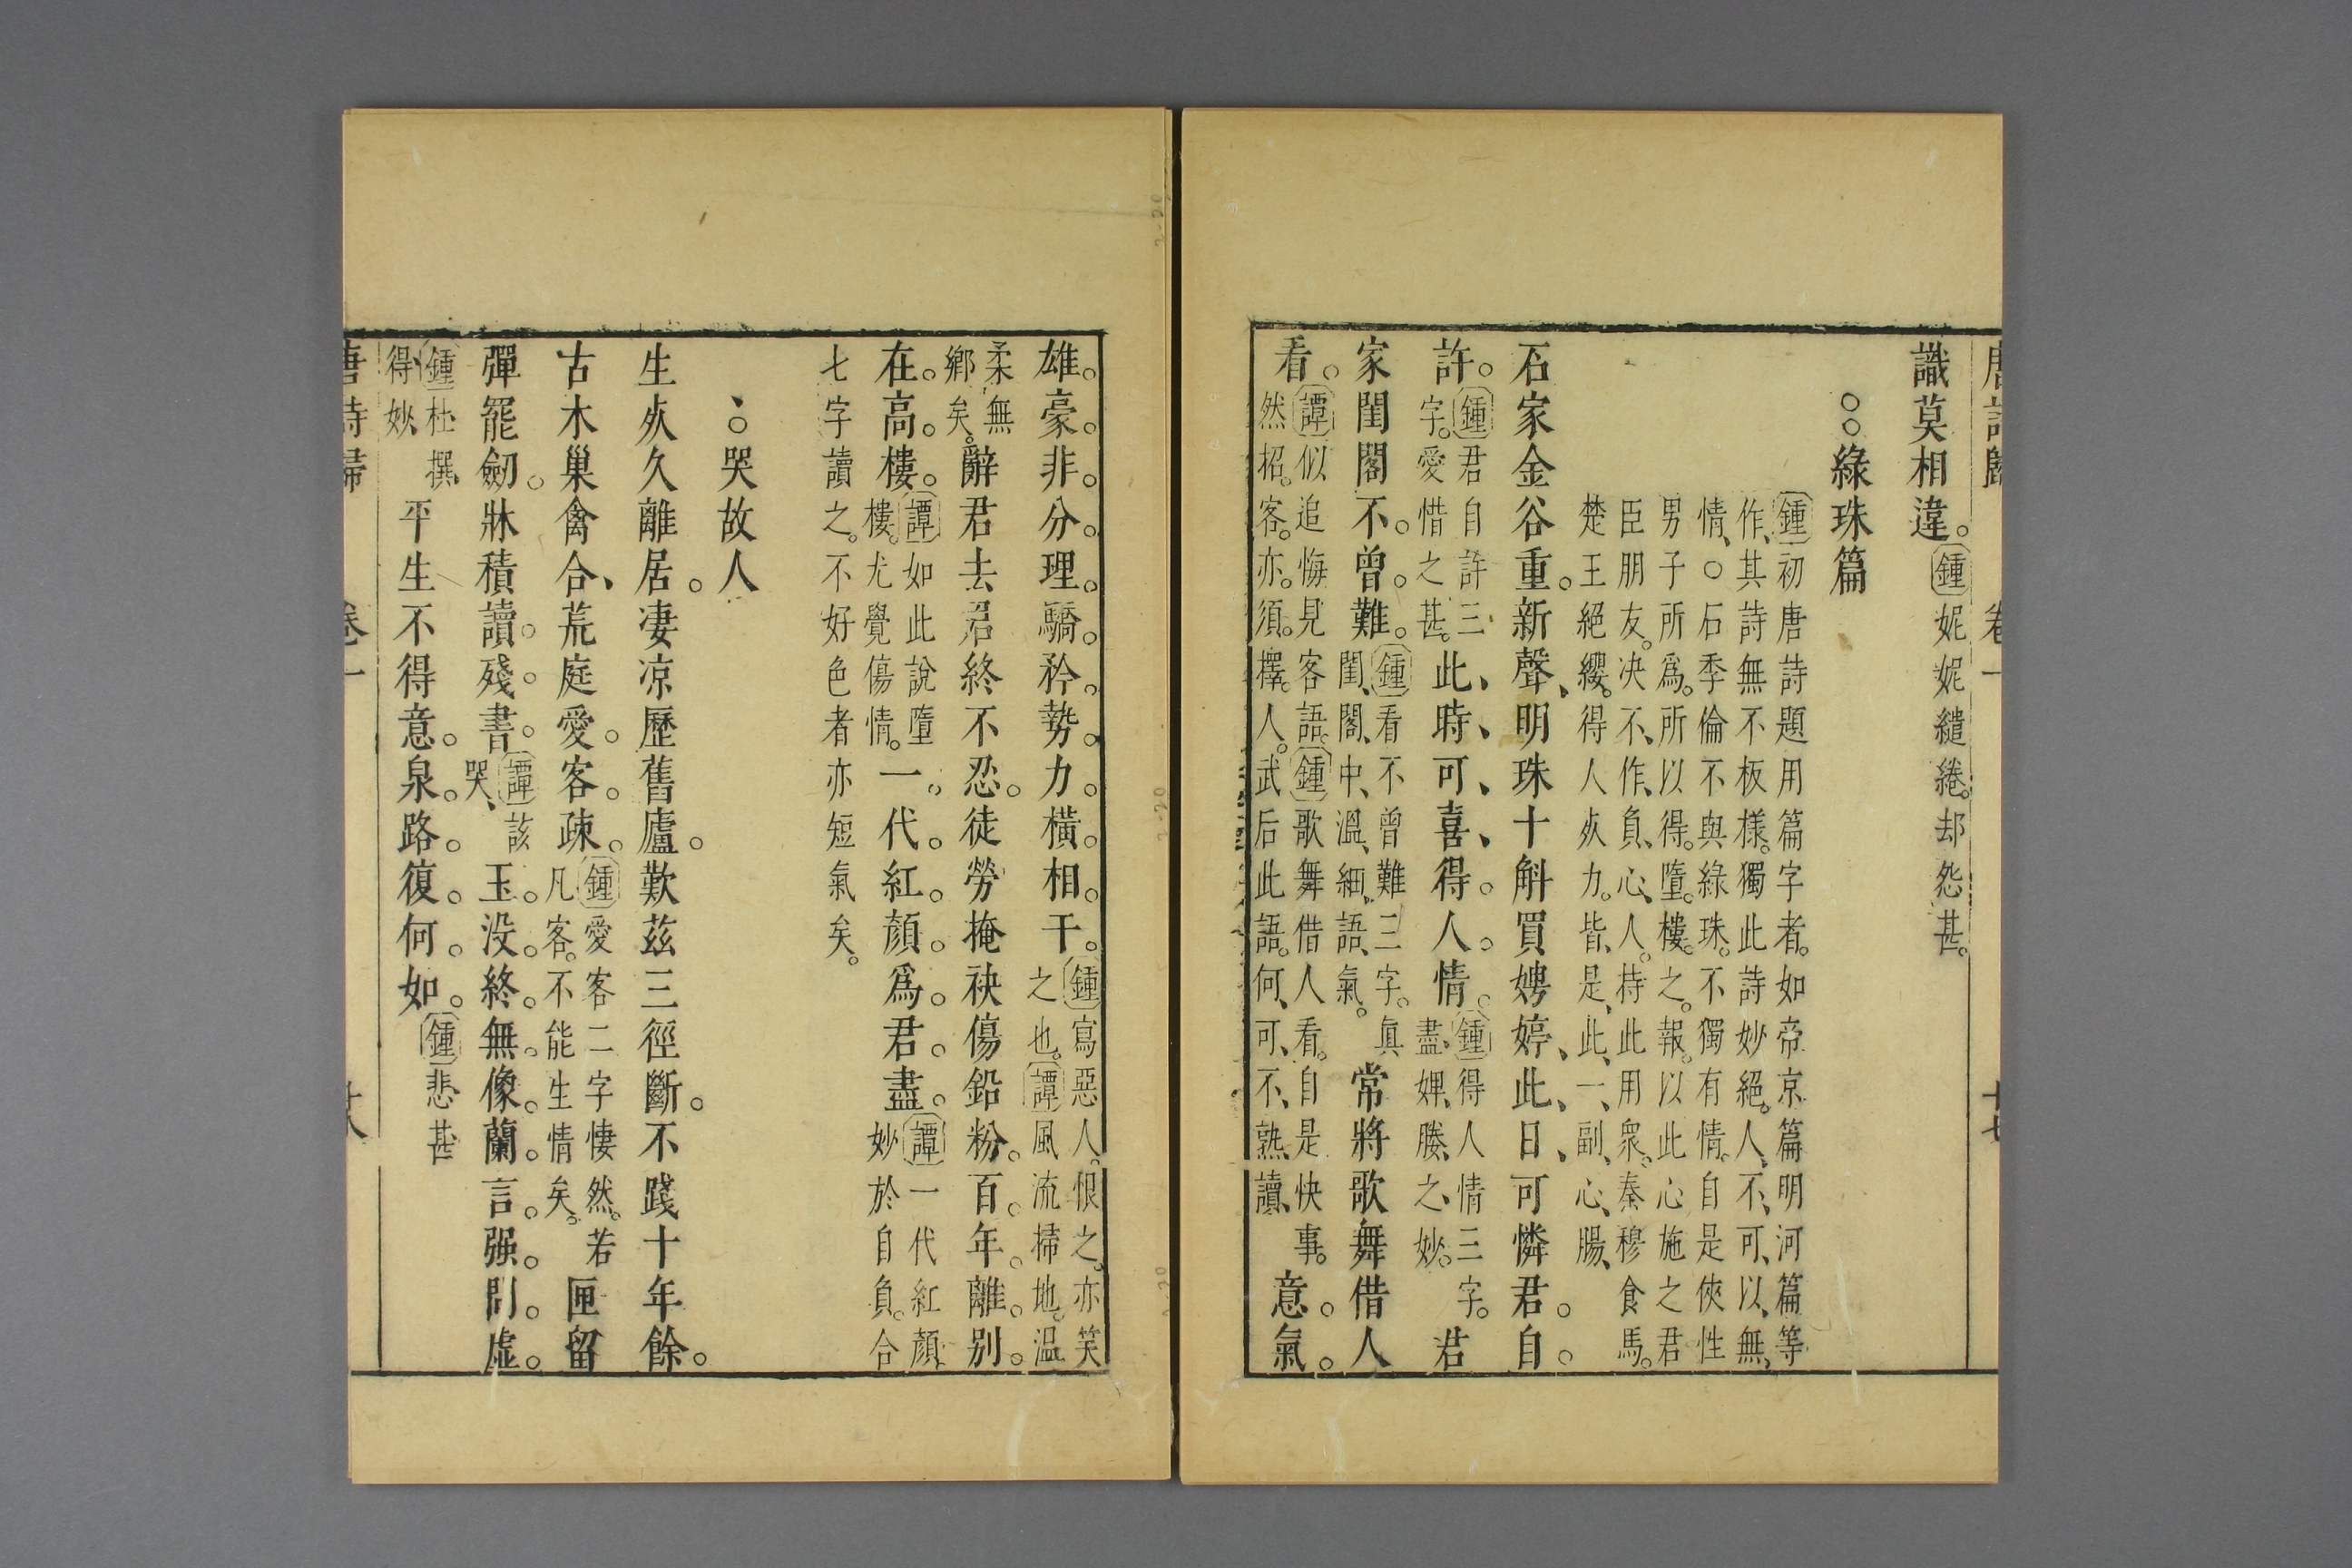 唐詩歸 卷一 十七
識莫相違。鍾妮妮繾綣。却怨甚。
○○綠珠篇
鍾初唐詩題用篇字者。如帝京篇明河篇等
作、其詩無不板樣。獨此詩妙絕。人、不、可、以、無、
情、○石季倫不與綠珠。不獨有情。自是俠性
男子所爲。所以得。墮。樓。之。報。以此心施之君
臣朋友。决不、作、負、心、人。持此用衆。秦穆食馬。
楚王絕纓。得人㱙力。皆、是、此、一、副、心、腸、
石家金谷重。新聲、明珠十斛買娉婷、此、日、可憐君。自。
許。鍾君自許三
字。愛惜之甚。此、時、可、喜、得。人。情。鍾得人情三字。
盡婢媵、之、妙。君
家閨閣不。曾。難。鍾看不曾難三字。眞
閨、閣、中、溫、細、語、氣。常將歌舞借人
看。譚似追悔見客語。鍾歌舞借人看。自是快事。
然招。客。亦。須。擇。人。武后此語。何、可、不、熟、讀、意。氣。
雄。豪。非。分。理。驕。矜。勢。力。橫。相。干。鍾寫惡人。恨之。亦笑
之也。譚風流掃地。温
柔無
鄉矣。辭君去君終不忍。徒勞掩袂傷鉛粉。百。年。離。別。
在。高。樓。譚如此說墮
樓。尤覺傷情。一。代。紅。顏。爲。君。盡。譚一代紅顏、
妙於自負。合
七字讀之。不好色者亦短氣矣。
、○哭故人
生㱙久離居。凄凉歷舊廬。歎茲三徑斷。不踐十年餘。
古木巢禽合、荒庭愛。客。疎。鍾愛客二字悽然。若
凡客。不能生情矣。匣留
彈罷劒。牀積讀。殘。書。譚該
哭、玉。没。終。無。像。蘭。言。强。問。虛。
鍾杜撰
得、妙、平生不得意。泉。路。復。何。如。鍾悲甚
唐詩歸 卷一 十八